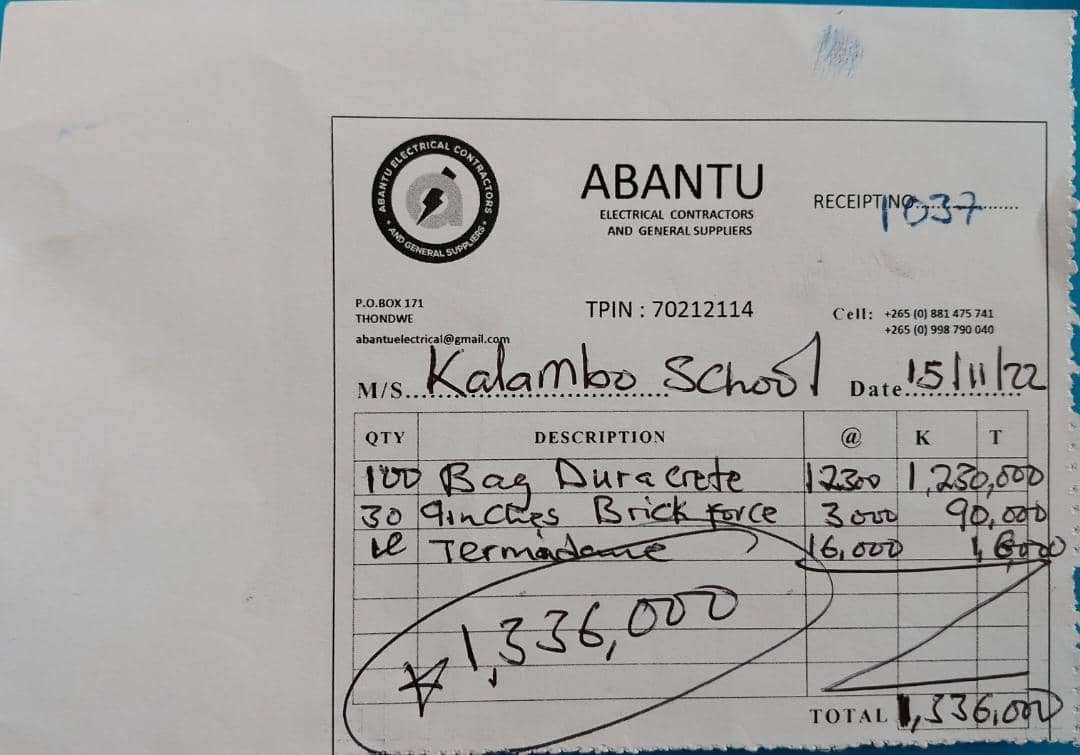 ABANTU ELECTRICAL CONTRACTORS
• AND GENERAL SUPPLIERS •
ABANTU
ELECTRICAL CONTRACTORS
AND GENERAL SUPPLIERS
RECEIPT NO. 1037
P.O.BOX 171
THONDWE
abantuelectrical@gmail.com
TPIN : 70212114
Cell: +265 (0) 881 475 741
+265 (0) 998 790 040
M/S. Kalambo School Date 15/11/22
QTY DESCRIPTION @ K T
100 Bag Duracrete 12300 1,230,000
30 9inches Brick force 3000 90,000
Termadame 16,000 16,000
1,336,000
TOTAL 1,336,000